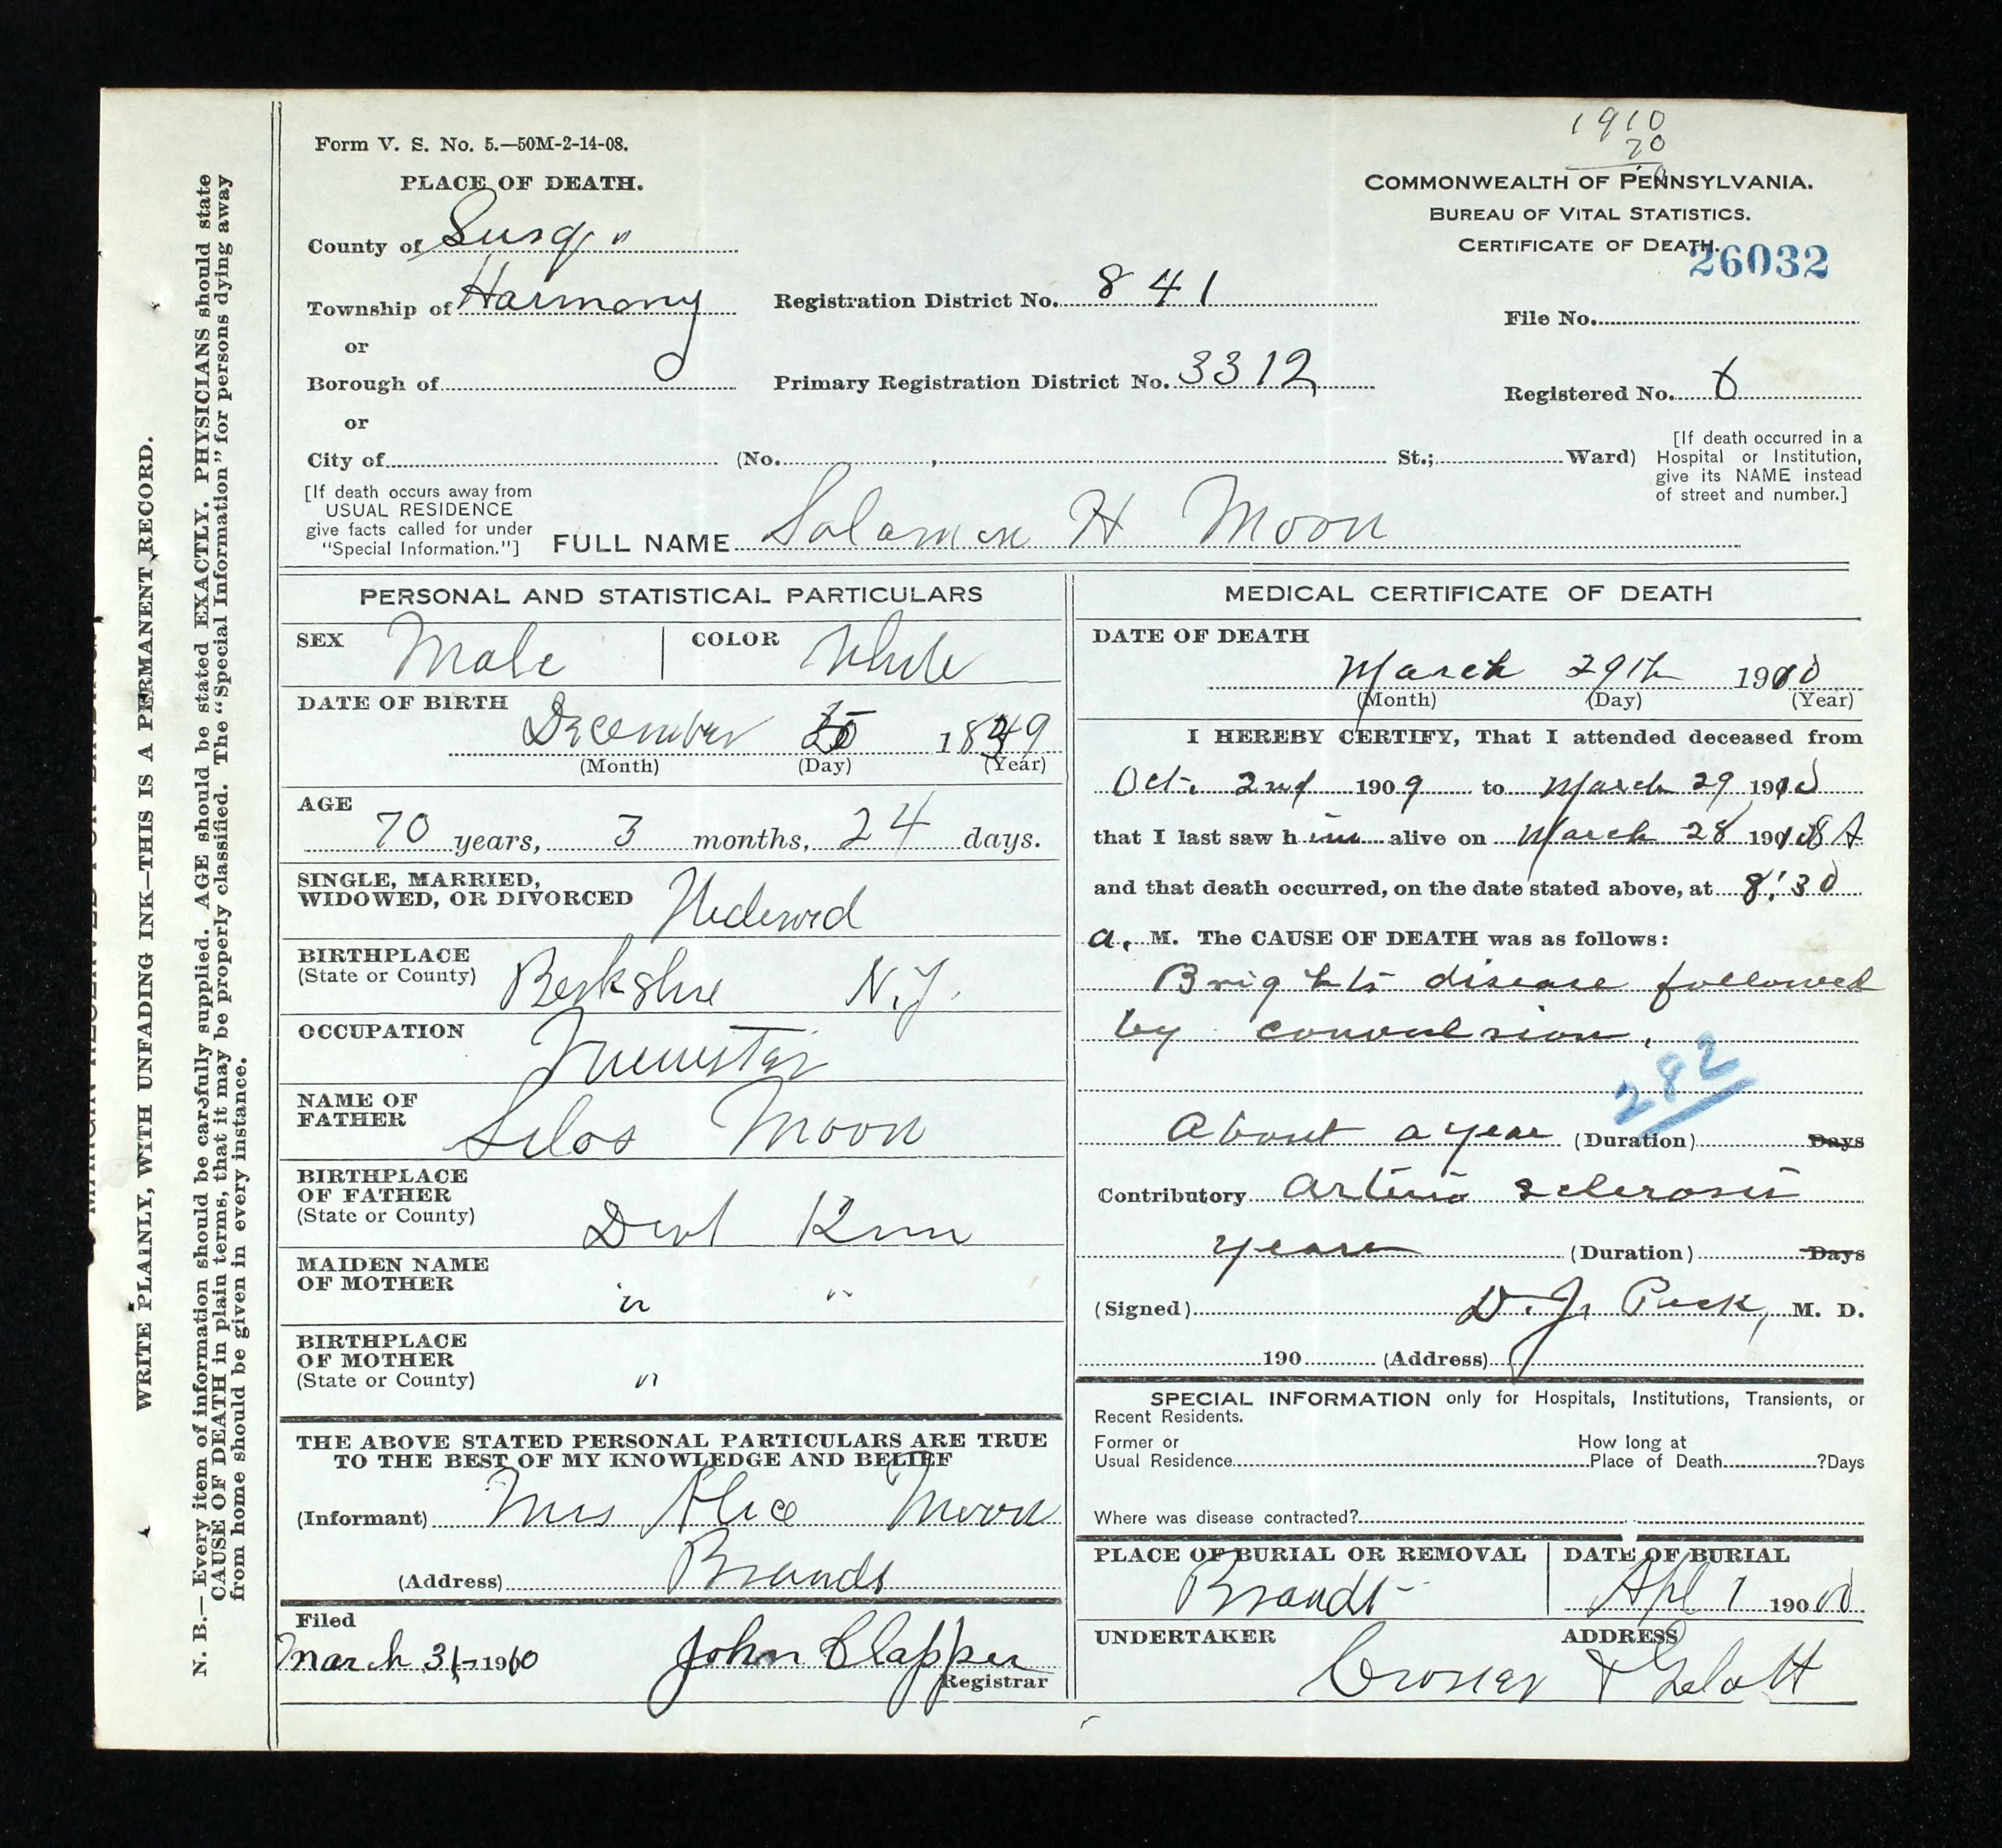 1910
20
Form V. S. No. 5.—50M-2-14-08.
PLACE OF DEATH.
COMMONWEALTH OF PENNSYLVANIA.
BUREAU OF VITAL STATISTICS.
CERTIFICATE OF DEATH.
26032
County of Susq.
Township of Harmony
Registration District No. 841
File No.
or
Borough of
Primary Registration District No. 3312
Registered No. 6
or
City of (No. , St.; Ward)
[If death occurred in a
Hospital or Institution,
give its NAME instead
of street and number.]
[If death occurs away from
USUAL RESIDENCE
give facts called for under
"Special Information."]
FULL NAME Solamon H Moon
PERSONAL AND STATISTICAL PARTICULARS
SEX Male COLOR White
DATE OF BIRTH
December 1849
(Month) (Day) (Year)
AGE
70 years, 3 months, 24 days.
SINGLE, MARRIED,
WIDOWED, OR DIVORCED
BIRTHPLACE
(State or County) Berkshire N.Y.
OCCUPATION
NAME OF
FATHER Silas Moon
BIRTHPLACE
OF FATHER
(State or County) Dont Know
MAIDEN NAME
OF MOTHER " "
BIRTHPLACE
OF MOTHER
(State or County) "
THE ABOVE STATED PERSONAL PARTICULARS ARE TRUE
TO THE BEST OF MY KNOWLEDGE AND BELIEF
(Informant) Mrs Alice Moon
(Address) Brandt
Filed
March 31 1910 John Clapper
Registrar
MEDICAL CERTIFICATE OF DEATH
DATE OF DEATH
March 29th 1910
(Month) (Day) (Year)
I HEREBY CERTIFY, That I attended deceased from
Oct. 2nd 1909 to March 29 1910
that I last saw him alive on March 28 1910
and that death occurred, on the date stated above, at 8:30
a. M. The CAUSE OF DEATH was as follows:
Brights disease followed
by convulsion.
282
About a year (Duration) Days
Contributory Arterio sclerosis
years (Duration) Days
(Signed) D. J. Peck, M. D.
190 (Address)
SPECIAL INFORMATION only for Hospitals, Institutions, Transients, or
Recent Residents.
Former or
Usual Residence
How long at
Place of Death ?Days
Where was disease contracted?
PLACE OF BURIAL OR REMOVAL
Brandt
DATE OF BURIAL
Apl 1 1910
UNDERTAKER ADDRESS
WRITE PLAINLY, WITH UNFADING INK—THIS IS A PERMANENT RECORD.
N. B.—Every item of information should be carefully supplied. AGE should be stated EXACTLY. PHYSICIANS should state
CAUSE OF DEATH in plain terms, that it may be properly classified. The "Special Information" for persons dying away
from home should be given in every instance.